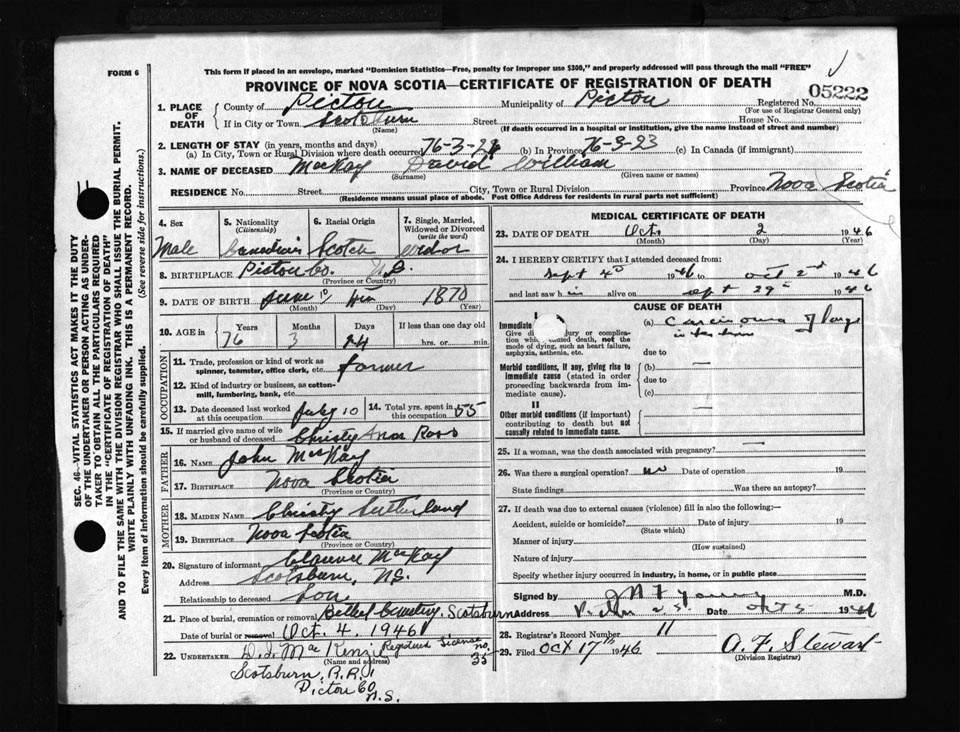 FORM 6
This form if placed in an envelope, marked "Dominion Statistics—Free, penalty for improper use $300," and properly addressed will pass through the mail "FREE"
PROVINCE OF NOVA SCOTIA—CERTIFICATE OF REGISTRATION OF DEATH
05222
1. PLACE OF DEATH
County of Pictou Municipality of Pictou Registered No.
(For use of Registrar General only)
If in City or Town Scotsburn Street House No.
(Name) (If death occurred in a hospital or institution, give the name instead of street and number)
2. LENGTH OF STAY (in years, months and days)
(a) In City, Town or Rural Division where death occurred 76-3-23 (b) In Province 76-3-23 (c) In Canada (if immigrant)
3. NAME OF DECEASED MacKay David William
(Surname) (Given name or names)
RESIDENCE No. Street City, Town or Rural Division Province Nova Scotia
(Residence means usual place of abode. Post Office Address for residents in rural parts not sufficient)
4. Sex Male
5. Nationality (Citizenship) Canadian
6. Racial Origin Scotch
7. Single, Married, Widowed or Divorced (write the word)
8. BIRTHPLACE Pictou Co. N.S.
(Province or Country)
9. DATE OF BIRTH June 1870
(Month) (Day) (Year)
10. AGE in Years Months Days If less than one day old
76 3 24 hrs. or min.
OCCUPATION
11. Trade, profession or kind of work as spinner, teamster, office clerk, etc. farmer
12. Kind of industry or business, as cotton-mill, lumbering, bank, etc.
13. Date deceased last worked at this occupation July 10
14. Total yrs. spent in this occupation 55
15. If married give name of wife or husband of deceased Christy Ross
FATHER
16. NAME John MacKay
17. BIRTHPLACE Nova Scotia
(Province or Country)
MOTHER
18. MAIDEN NAME Christy Sutherland
19. BIRTHPLACE Nova Scotia
(Province or Country)
20. Signature of informant Clarence MacKay
Address Scotsburn, N.S.
Relationship to deceased Son
21. Place of burial, cremation or removal Bethel Cemetery, Scotsburn
Date of burial or removal Oct. 4, 1946
22. UNDERTAKER D.J. MacKenzie Registered License no. 35
(Name and address)
Scotsburn, R.R.1
Pictou Co
N.S.
MEDICAL CERTIFICATE OF DEATH
23. DATE OF DEATH Oct. 2 1946
(Month) (Day) (Year)
24. I HEREBY CERTIFY that I attended deceased from:
Sept 1946 to Oct 2nd 1946
and last saw him alive on Sept 29 1946
CAUSE OF DEATH
I
Immediate
Give disease, injury or complication which caused death, not the mode of dying, such as heart failure, asphyxia, asthenia, etc.
(a) Carcinoma of large
intestine
due to
Morbid conditions, if any, giving rise to immediate cause (stated in order proceeding backwards from immediate cause).
(b) —
due to
(c)
II
Other morbid conditions (if important) contributing to death but not causally related to immediate cause.
—
25. If a woman, was the death associated with pregnancy? —
26. Was there a surgical operation? no Date of operation 19
State findings Was there an autopsy?
27. If death was due to external causes (violence) fill in also the following:—
Accident, suicide or homicide? Date of injury 19
(State which)
Manner of injury
(How sustained)
Nature of injury
Specify whether injury occurred in industry, in home, or in public place
Signed by Young M.D.
Address Date Oct 5 1946
28. Registrar's Record Number 11
29. Filed Oct 17th 1946 A. F. Stewart
(Division Registrar)
SEC. 46—VITAL STATISTICS ACT MAKES IT THE DUTY
OF THE UNDERTAKER OR PERSON ACTING AS UNDER-
TAKER TO OBTAIN ALL THE PARTICULARS REQUIRED
IN THE "CERTIFICATE OF REGISTRATION OF DEATH"
AND TO FILE THE SAME WITH THE DIVISION REGISTRAR WHO SHALL ISSUE THE BURIAL PERMIT.
WRITE PLAINLY WITH UNFADING INK. THIS IS A PERMANENT RECORD.
Every item of information should be carefully supplied. (See reverse side for instructions.)